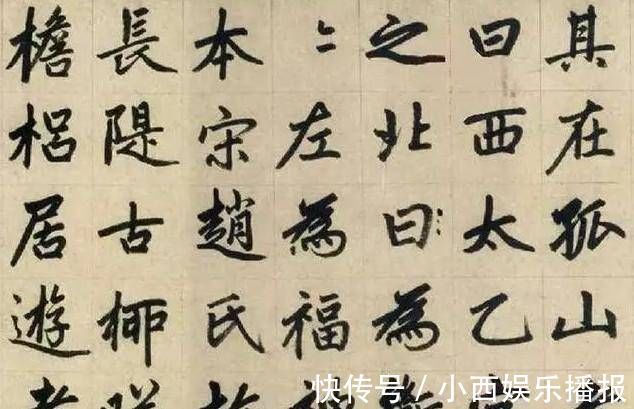 其在孤山
曰西太乙
之北曰為
〻左為福
本宋趙氏
長隄古柳
檐梠居遊
快传号 / 小西娱乐播报